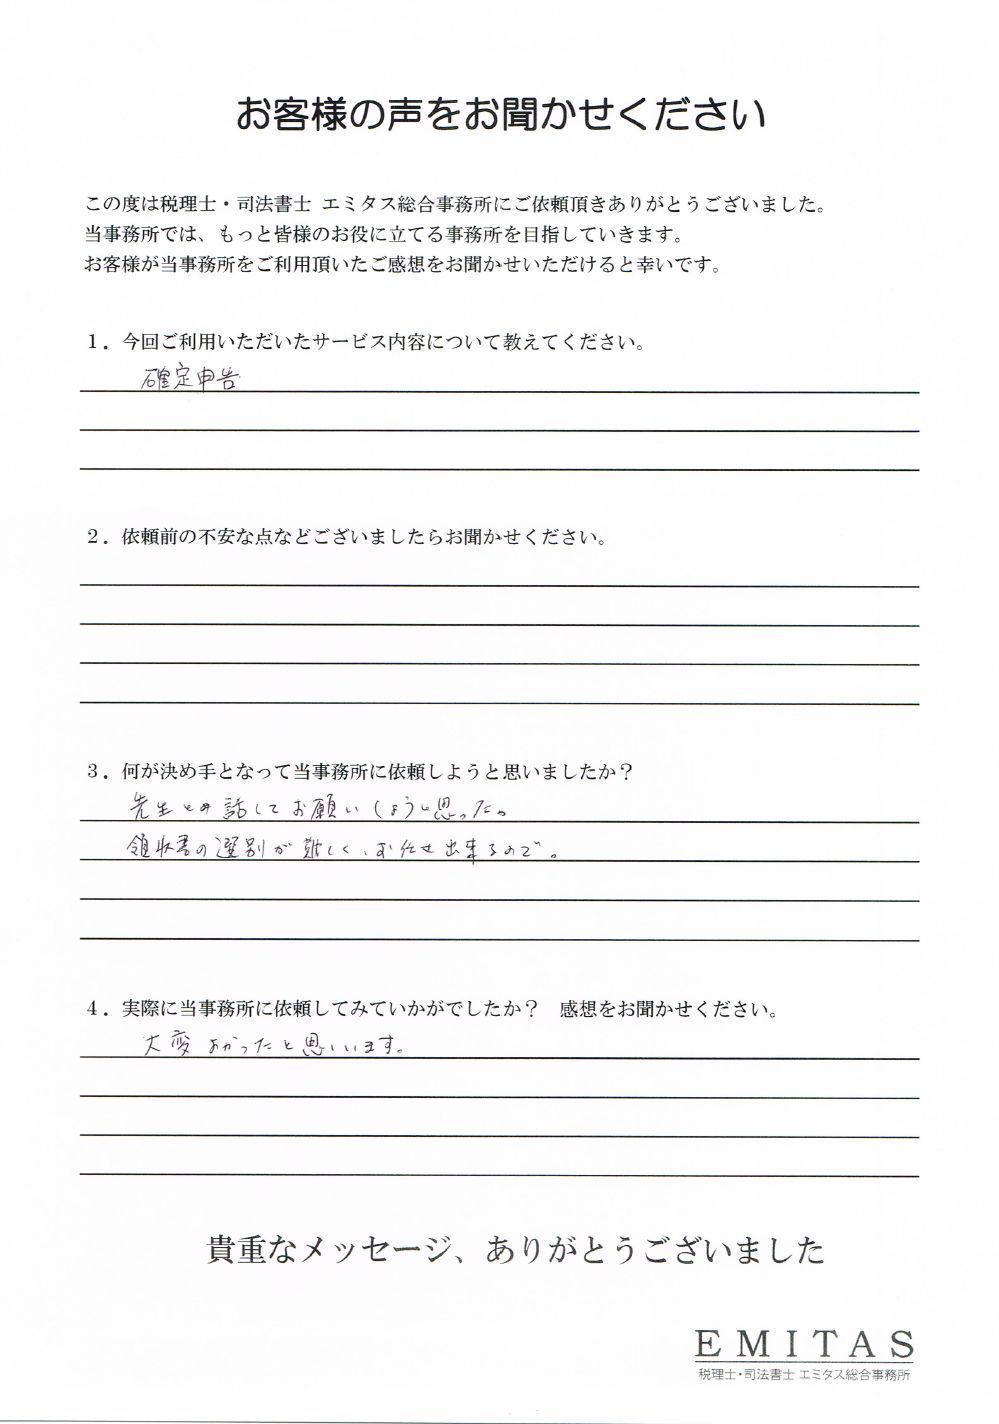 お客様の声をお聞かせください
この度は税理士・司法書士 エミタス総合事務所にご依頼頂きありがとうございました。
当事務所では、もっと皆様のお役に立てる事務所を目指していきます。
お客様が当事務所をご利用頂いたご感想をお聞かせいただけると幸いです。
１．今回ご利用いただいたサービス内容について教えてください。
確定申告
２．依頼前の不安な点などございましたらお聞かせください。
３．何が決め手となって当事務所に依頼しようと思いましたか？
先生とお話してお願いしようと思った。
領収書の選別が難しく、お任せ出来るので。
４．実際に当事務所に依頼してみていかがでしたか？ 感想をお聞かせください。
大変よかったと思いいます。
貴重なメッセージ、ありがとうございました
EMITAS
税理士・司法書士 エミタス総合事務所